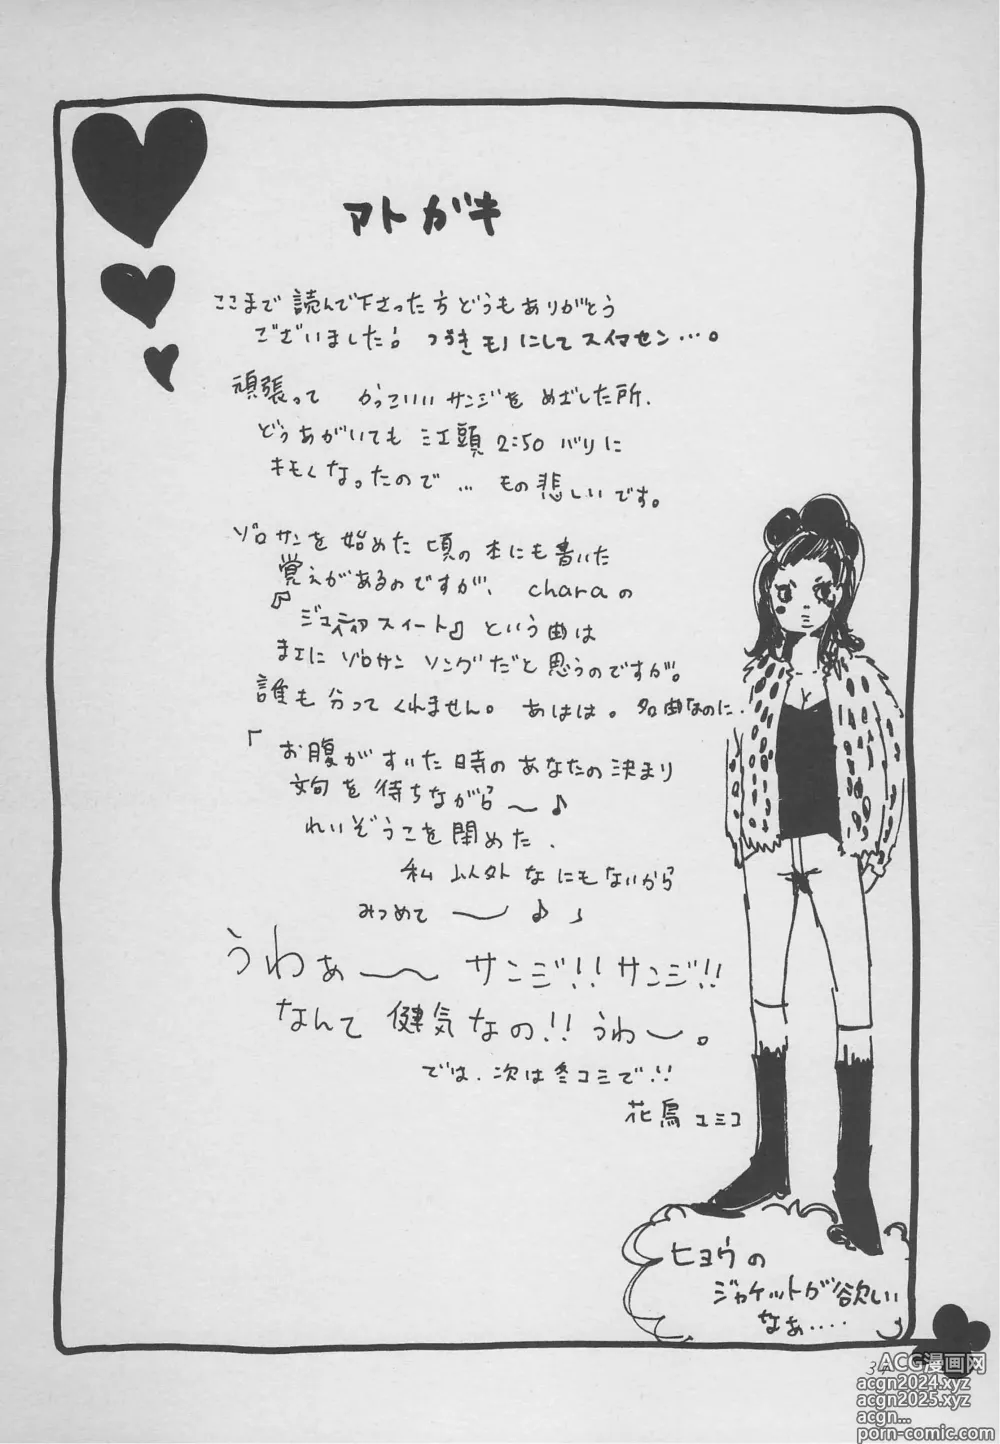 アトガキ
ここまで読んで下さった方どうもありがとう
ございました! つづきモノにしてスイマセン…。
頑張って かっこいいサンジをめざした所、
どうあがいても 江頭2:50バリに
キモくなったので… もの悲しいです。
ゾロサンを始めた頃の本にも書いた
覚えがあるのですが、charaの
『ジュディアスイート』という曲は
まさにゾロサンソングだと思うのですが。
誰も分ってくれません。あはは。名曲なのに。
「お腹がすいた時のあなたの決まり
文句を待ちながら〜♪
れいぞうこを閉めた、
私以外なにもないから
みつめて〜♪」
うわぁ〜 サンジ!!サンジ!!
なんて健気なの!!うわ〜。
では、次は冬コミで!!
花鳥ユミコ
ヒョウの
ジャケットが欲しい
なぁ‥‥
37
ACG漫画网
acgn2024.xyz
acgn2025.xyz
acgn...
porn-comic.com